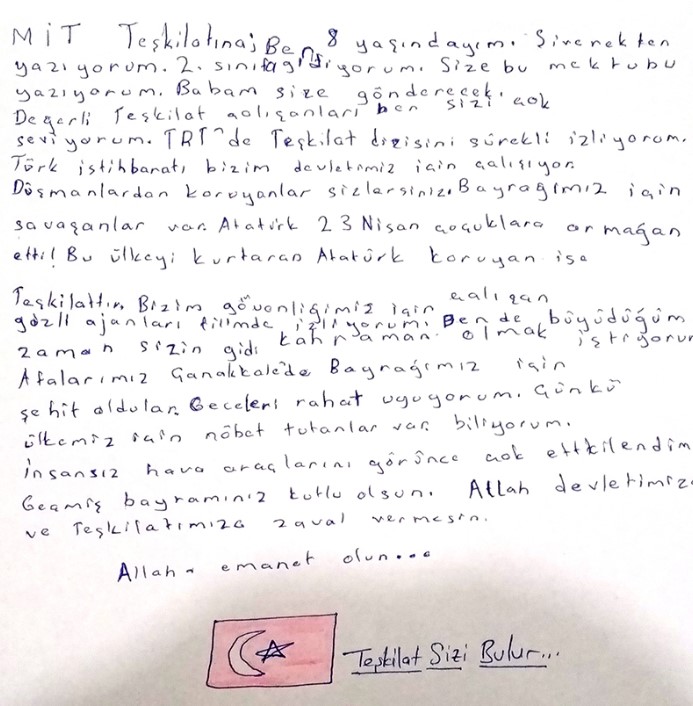 MİT Teşkilatına; Ben 8 yaşındayım. Siverekten
yazıyorum. 2. sınıfa gidiyorum. Size bu mektubu
yazıyorum. Babam size gönderecek.
Değerli Teşkilat çalışanları ben sizi çok
seviyorum. TRT'de Teşkilat dizisini sürekli izliyorum.
Türk istihbaratı bizim devletimiz için çalışıyor.
Düşmanlardan koruyanlar sizlersiniz. Bayrağımız için
savaşanlar var. Atatürk 23 Nisan çocuklara armağan
etti! Bu ülkeyi kurtaran Atatürk koruyan ise
Teşkilattır. Bizim güvenliğimiz için çalışan
gizli ajanları filimde izliyorum. Ben de büyüdüğüm
zaman sizin gidi kahraman olmak istiyorum
Atalarımız Çanakkale'de Bayrağımız için
şehit oldular. Geceleri rahat uyuyorum. Çünkü
ülkemiz için nöbet tutanlar var biliyorum.
İnsansız hava araçlarını görünce çok ettkilendim
Geçmiş bayramınız kutlu olsun. Allah devletimize
ve Teşkilatımıza zaval vermesin.
Allaha emanet olun...
Teşkilat Sizi Bulur...